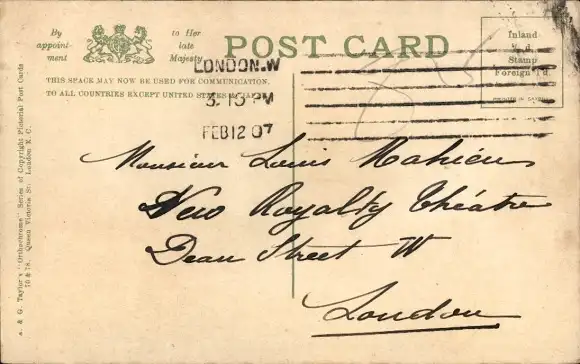 By
appoint-
ment
to Her
late
Majesty
POST CARD
THIS SPACE MAY NOW BE USED FOR COMMUNICATION.
TO ALL COUNTRIES EXCEPT UNITED STATES & JAPAN
Inland
½d.
Stamp
Foreign 1d.
LONDON.W
3.15 PM
FEB 12 07
Monsieur Louis Mahieu
New Royalty Théatre
Dean Street W
London
A. & G. Taylor's "Orthochrome" Series of Copyright Pictorial Post Cards
70 & 78, Queen Victoria St. London E.C.